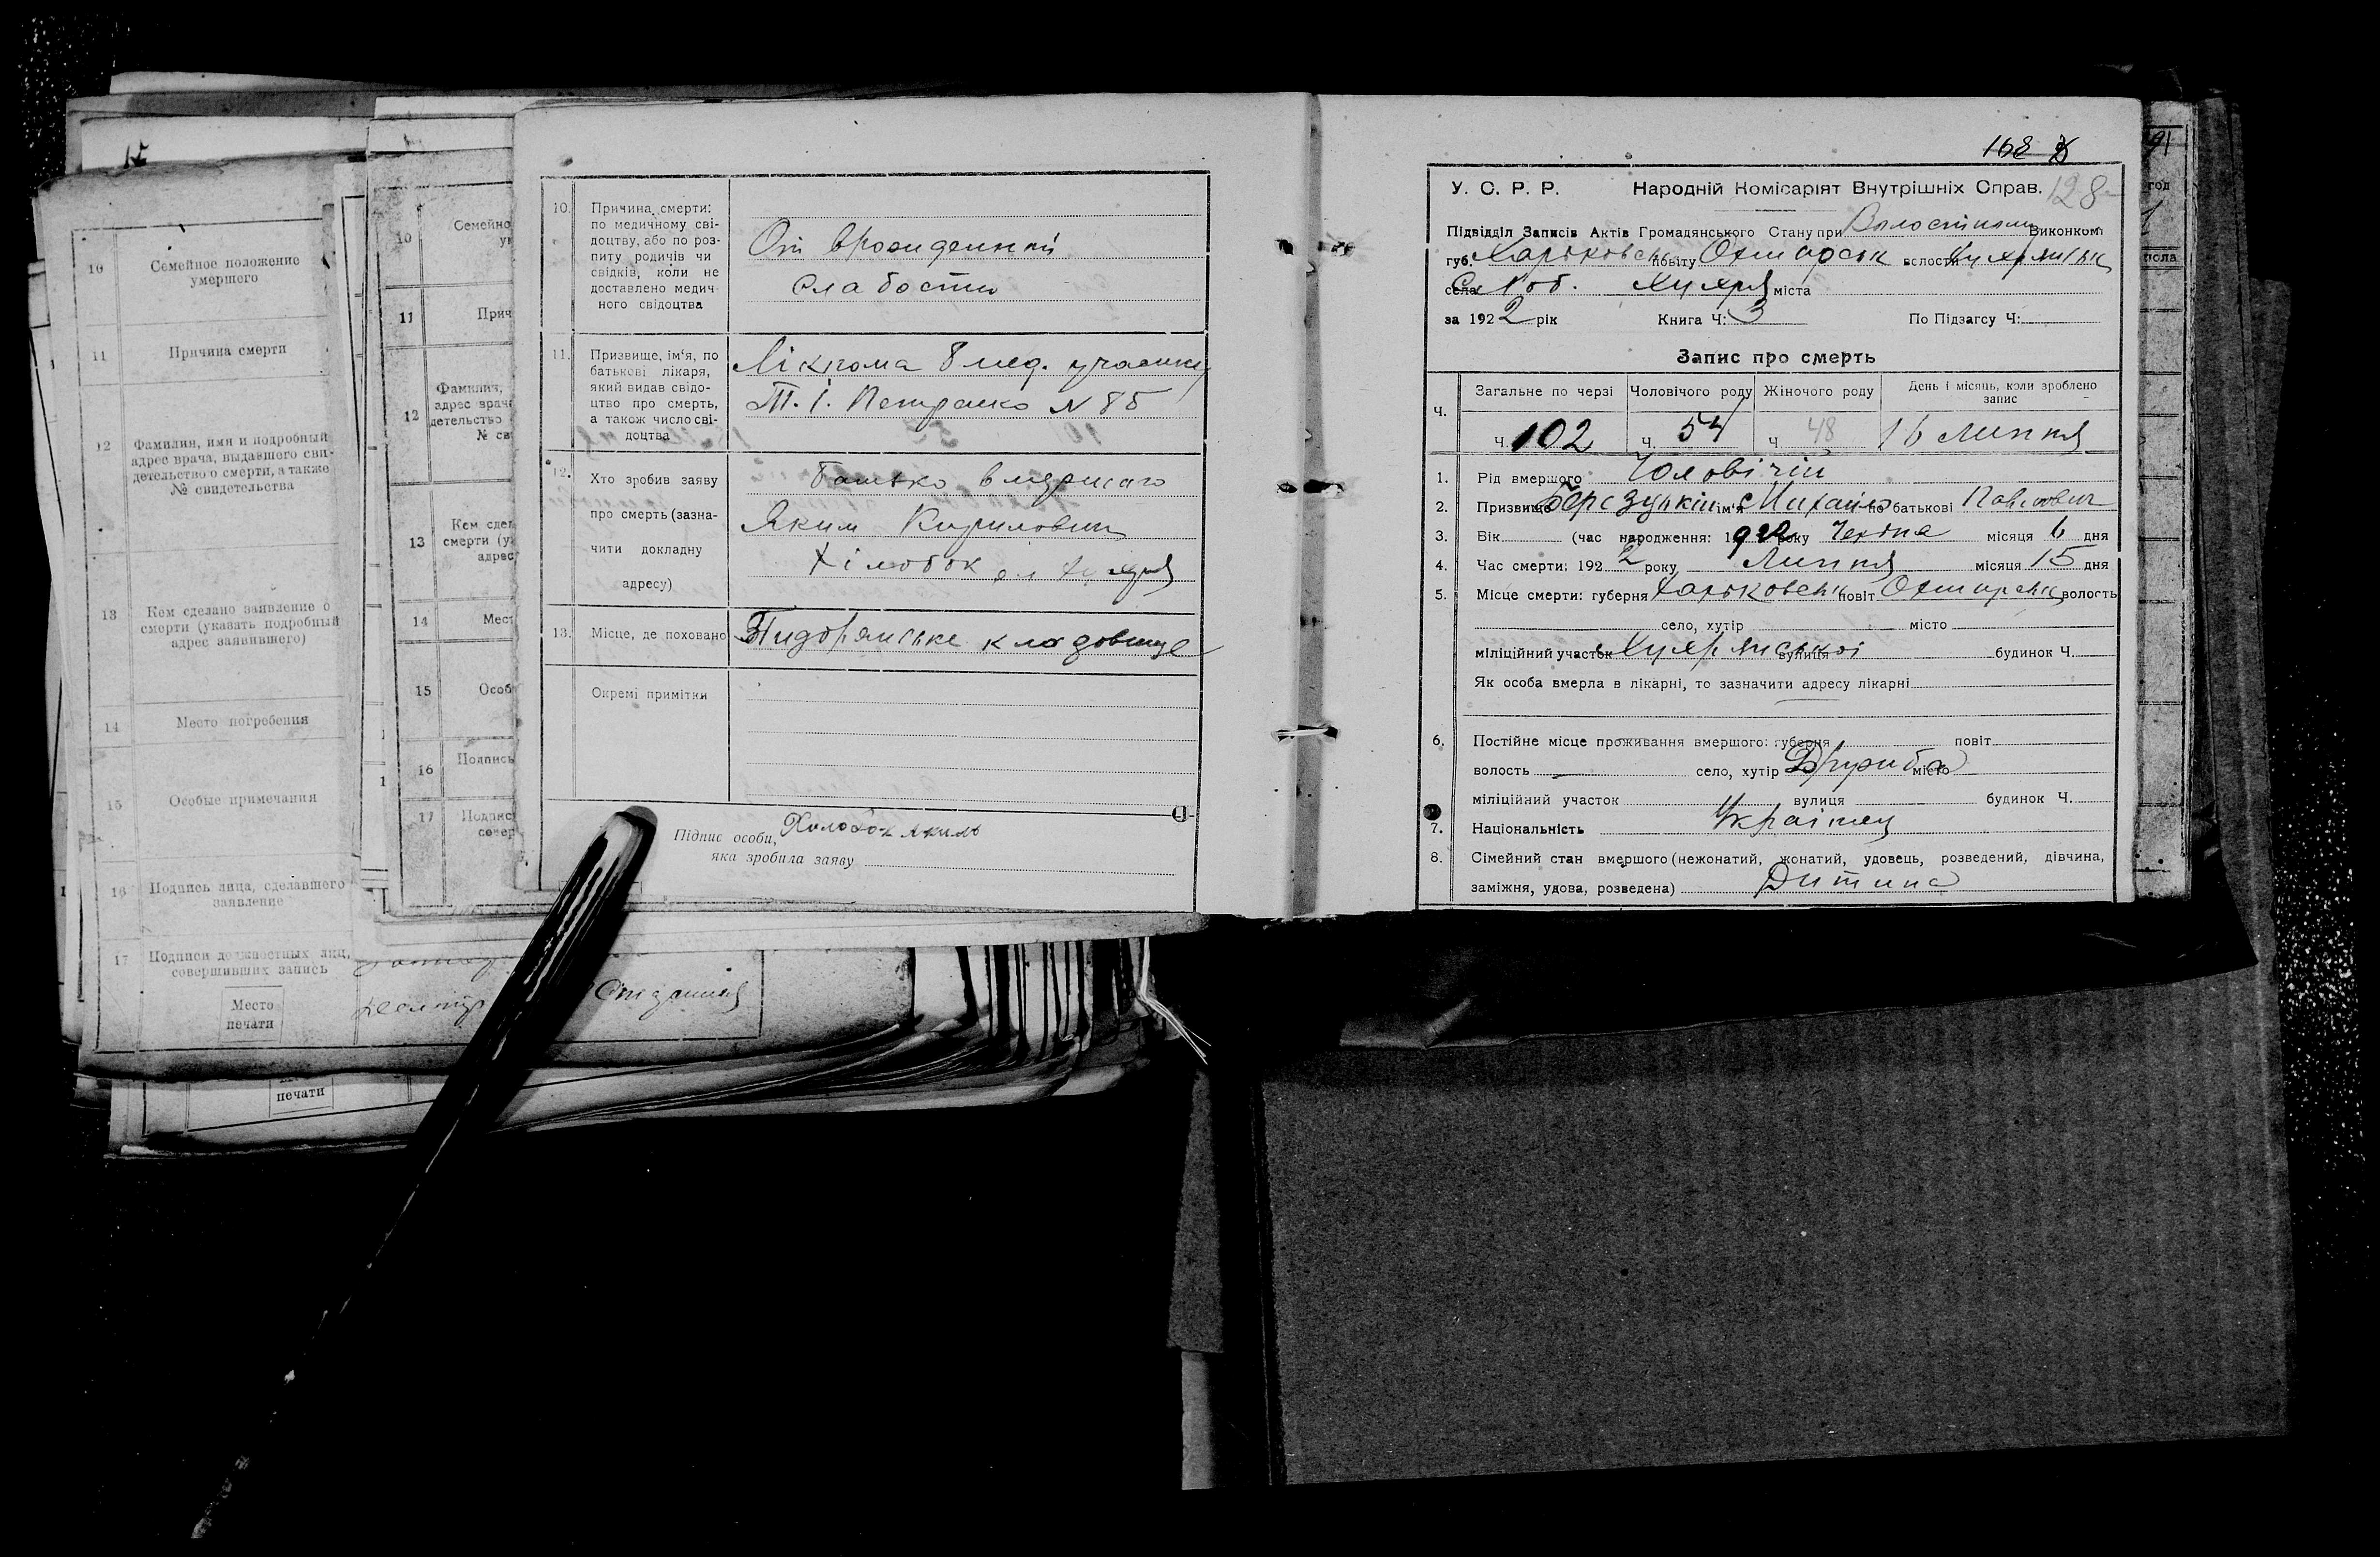 10. Причина смерти:
по медичному сві-
доцтву, або по роз-
питу родичів чи
свідків, коли не
доставлено медич-
ного свідоцтва
От врожденной
слабости
11. Призвище, ім'я, по
батькові лікаря,
який видав свідо-
цтво про смерть,
а також число сві-
доцтва
Лікпома 8 мед. участку
Т. І. Петренко N 85
12. Хто зробив заяву
про смерть (зазна-
чити докладну
адресу)
Батько вмершаго
Яким Кирилович
13. Місце, де поховано
кладовище
Окремі примітки
Підпис особи,
яка зробила заяву
Холодок Яким
168
128
У. С. Р. Р. Народній Комісаріят Внутрішніх Справ.
Підвідділ Записів Актів Громадянського Стану при Волостному Виконком
губ. Харьковськ повіту Охтирськ волости Кухямиськ
села Слоб. Хухря міста
за 1922 рік Книга Ч: 3 По Підзагсу Ч:
Запис про смерть
Ч. Загальне по черзі Чоловічого роду Жіночого роду День і місяць, коли зроблено
запис
Ч. 102 Ч. 54 Ч 48 16 Липня
1. Рід вмершого Чоловічій
2. Призвище ім'я Михайло по батькові Павлович
3. Вік (час народження: 1922 року Червня місяця 6 дня
4. Час смерти: 1922 року Липня місяця 15 дня
5. Місце смерти: губерня Харьковськ повіт Охтирськ волость
село, хутір місто
міліційний участок Хухрянської вулиця будинок Ч.
Як особа вмерла в лікарні, то зазначити адресу лікарні
6. Постійне місце проживання вмершого: губерня повіт
волость село, хутір місто
міліційний участок вулиця будинок Ч.
7. Національність Українец
8. Сімейний стан вмершого (нежонатий, жонатий, удовець, розведений, дівчина,
заміжня, удова, розведена) Дитина
10 Семейное положение
умершего
11 Причина смерти
12 Фамилия, имя и подробный
адрес врача, выдавшего сви-
детельство о смерти, а также
№ свидетельства
13 Кем сделано заявление о
смерти (указать подробный
адрес заявившего)
14 Место погребения
15 Особые примечания
16 Подпись лица, сделавшего
заявление
17 Подписи должностных лиц,
совершивших запись
Место
печати
печати
10 Семейно
11 Прич
12 Фамилия,
адрес врач
детельство
№ св
13 Кем сдел
смерти (у
адрес
14 Мест
15 Особ
16 Подпись
17 Подпис
совер
91
год
пола